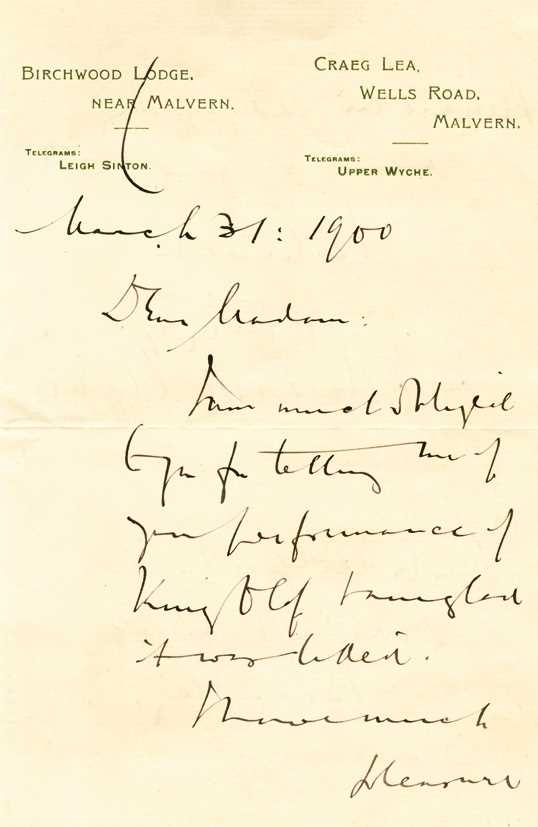 BIRCHWOOD LODGE,
NEAR MALVERN.
TELEGRAMS:
LEIGH SINTON.
CRAEG LEA,
WELLS ROAD,
MALVERN.
TELEGRAMS:
UPPER WYCHE.
March 31: 1900
Dear Madam:
I am much obliged
to you for telling me of
your performance of
King Olaf & am glad
it was liked.
I have much
pleasure